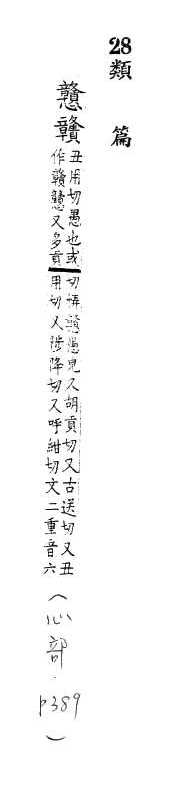 28類 篇
戇贛
丑用切愚也或
作贛戇又多貢
切愚皃又胡貢切又古送切又丑
用切又陟降切又呼紺切文二重音六
(心部.p389)